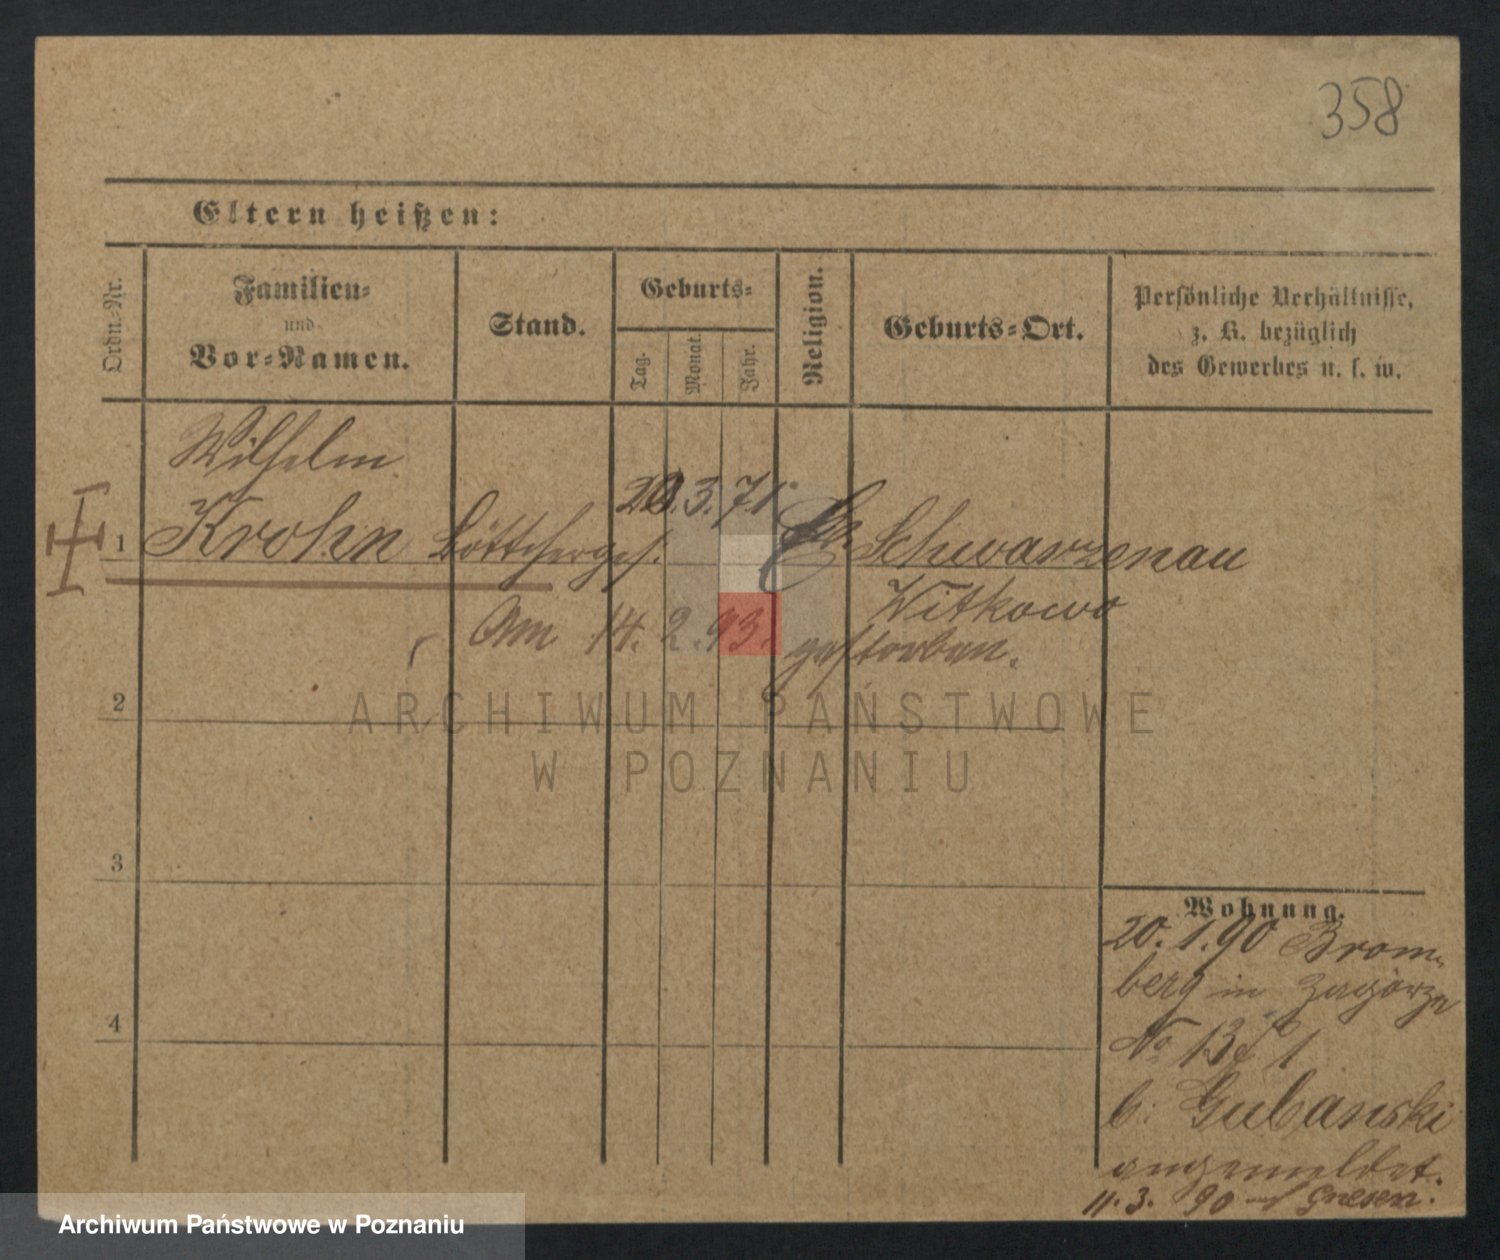 358
Eltern heißen:
Ordn.-Nr.
Familien-
und
Vor-Namen.
Stand.
Geburts-
Tag.
Monat.
Jahr.
Religion.
Geburts-Ort.
Persönliche Verhältnisse,
z. B. bezüglich
des Gewerbes u. s. w.
Wilhelm
1 Krohn Böttcherges. 20.3.71. Schwarzenau
Witkowo
Am 14. 2. 93. gestorben.
2
ARCHIWUM PAŃSTWOWE
W POZNANIU
3
4
Wohnung.
20.1.90 Brom-
berg in Zagórze
No 13 1
b. Gubanski
angemeldet.
11.3. 90 Gnesen.
Archiwum Państwowe w Poznaniu